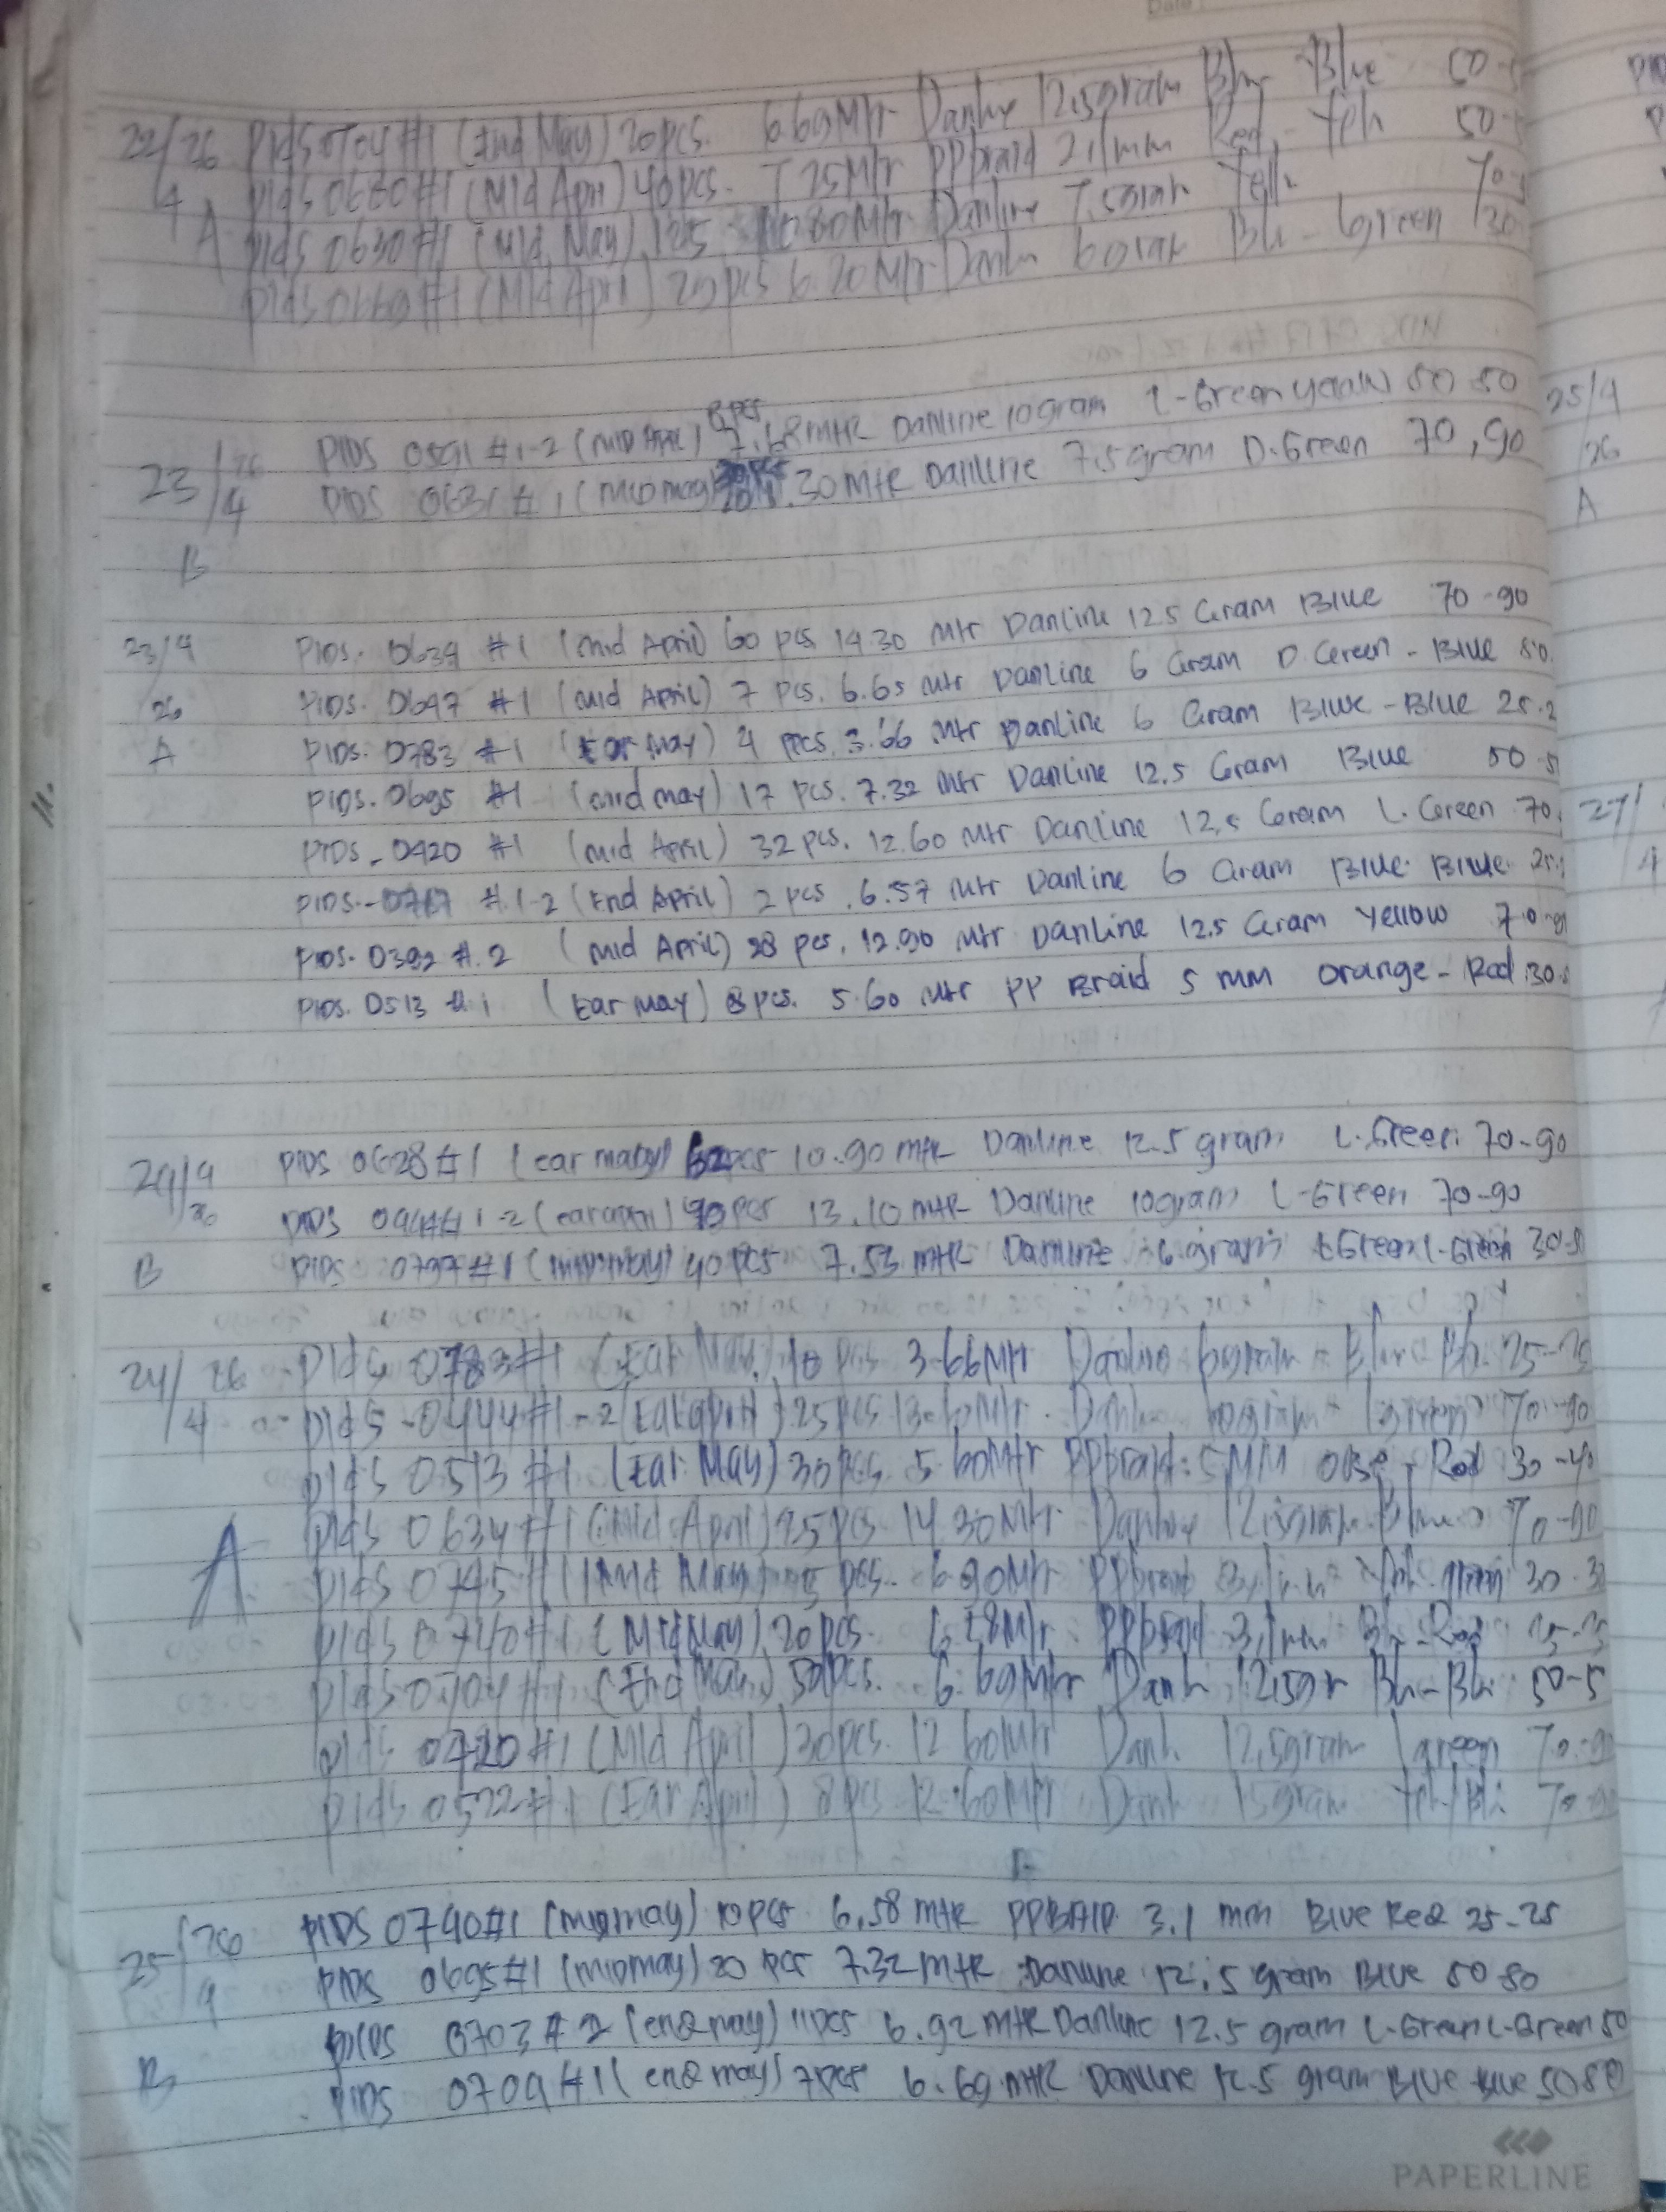 Date:
22/26 PIdS 0704 #1 (End May) 20 pcs. 6.69 Mtr Danline 12,5 gram Blu - Blue 50-5
4 PIdS 0660 #1 (MId Apri) 40 pcs. 7.25 Mtr PPbraid 2,1 mm Red, Yell 50-5
A PIdS 0630 #1 (Mid, May) Danline 7.5 grah Yell 70-
PIdS 0669 #1 (MId April) 20 pcs 6.20 Mtr Danln 6 gram Blu - Green 30
23/26 PIDS 0591 #1-2 (MID APRIL) 8 pcs 7.68 MTR DANLINE 10 gram L-Green yellow 50 50
4 PIDS 0631 #1 (MID may) .30 MTR DANLINE 7.5 gram D.Green 70,90
B
23/4 PIDS. 0634 #1 (Mid April) 60 pcs 14.30 Mtr Danline 12.5 Gram Blue 70-90
26 PIDS. 0647 #1 (Mid April) 7 pcs. 6.65 Mtr Danline 6 Gram D. Green - Blue 50.
A PIDS. 0783 #1 (Ear May) 4 pcs. 3.66 Mtr Danline 6 Gram Blue - Blue 25.2
PIDS. 0695 #1 (Mid may) 17 pcs. 7.32 Mtr Danline 12.5 Gram Blue 50-5
PIDS. 0420 #1 (Mid April) 32 pcs. 12.60 Mtr Danline 12,5 Gram L. Green 70.
PIDS. #.1-2 (End April) 2 pcs. 6.57 Mtr Danline 6 Gram Blue. Blue. 25.
PIDS. 0392 #.2 (Mid April) 28 pcs. 12.90 Mtr Danline 12.5 Gram Yellow 70-9
PIDS. 0513 #.1 (Ear May) 8 pcs. 5.60 Mtr PP Braid 5 mm Orange - Red 30-
24/4 PIDS 0628 #1 (ear may) 10.90 MTR Danline 12.5 gram L.Green 70-90
26 PIDS #1-2 (ear april) 13.10 MTR Danline 10 gram L-Green 70-90
B PIDS 0797 #1 (mid may) 40 pcs 7.53 MTR Danline 6 gram L-Green 30-
24/26 PIdS 0783 #1 (Ear May) 10 pcs 3.66 Mtr Danline 6 gram Blue Blu. 25-25
4 PIdS -0444 #1-2 (Ear april) 25 pcs Mtr. Danln 10 gram lgreen 70-90
PIdS 0513 #1 (Ear May) 30 pcs 5.60 Mtr PPbraid 5 MM - Red 30-40
A PIdS 0634 #1 (Mid April) 25 pcs. 14.30 Mtr Danline 12,5 gram Blue 70-90
PIdS 0745 #1 May) pcs. 6.90 Mtr PPbraid green 30-30
PIdS 0740 #1 (Mid May) 20 pcs. Mtr PPbraid 3,1 mm Blu-Red 25-25
PIdS 0704 #1 (End May) 50 pcs. 6.69 Mtr Danln 12,5 gr Blu-Blu 50-5
PIdS 0420 #1 (MId April) 30 pcs. 12.60 Mtr Danln 12,5 gram lgreen 70-90
PIdS 0522 #1 (Ear April) 8 pcs 12.60 Mtr Danln 15 gram Yell/Blu 70-90
25/26 PIDS 0740 #1 (mid may) 10 pcs 6,58 MTR PPBRAID 3.1 mm Blue Red 25-25
4 PIDS 0695 #1 (mid may) 20 pcs 7.32 MTR Danline 12.5 gram Blue 50 50
PIDS 0703 #2 (end may) 11 pcs 6.92 MTR Danline 12.5 gram L-Green L-Green 50
B PIDS 0704 #1 (end may) 7 pcs 6.69 MTR Danline 12.5 gram Blue Blue 50 50
25/4
26
A
27/
4
PAPERLINE